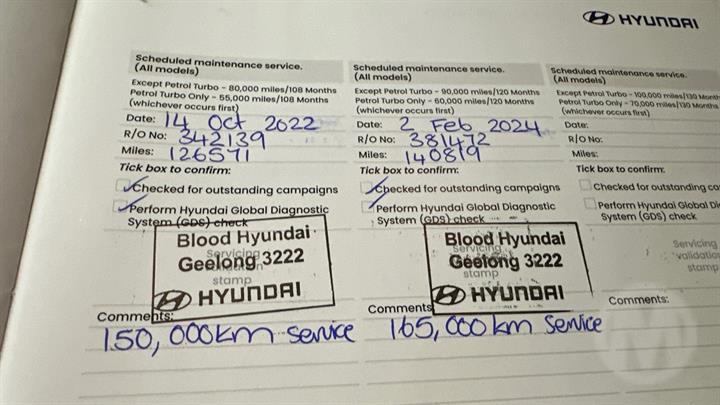 HYUNDAI
Scheduled maintenance service.
(All models)
Except Petrol Turbo - 80,000 miles/108 Months
Petrol Turbo Only - 55,000 miles/108 Months
(whichever occurs first)
Date: 14 Oct 2022
R/O No: 342139
Miles: 126571
Tick box to confirm:
Checked for outstanding campaigns
Perform Hyundai Global Diagnostic
System (GDS) check
Blood Hyundai
Servicing
Geelong 3222
stamp
HYUNDAI
Comments:
150,000km Service
Scheduled maintenance service.
(All models)
Except Petrol Turbo - 90,000 miles/120 Months
Petrol Turbo Only - 60,000 miles/120 Months
(whichever occurs first)
Date: 2 Feb 2024
R/O No: 381472
Miles: 140819
Tick box to confirm:
Checked for outstanding campaigns
Perform Hyundai Global Diagnostic
System (GDS) check
Blood Hyundai
Servicing
Geelong 3222
stamp
HYUNDAI
Comments
165,000km Service
Scheduled maintenance service.
(All models)
Except Petrol Turbo - 100,000 miles/130 Month
Petrol Turbo Only - 70,000 miles/130 Months
(whichever occurs first)
Date:
R/O No:
Miles:
Tick box to confirm:
Checked for outstanding ca
Perform Hyundai Global Di
System (GDS) check
Servicing
validatio
stamp
Comments:
M